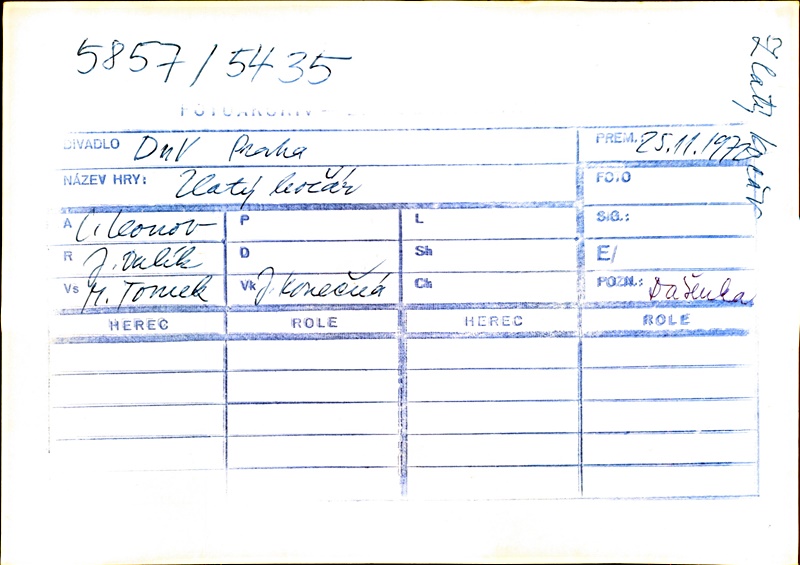 5857/5435
Zlatý kočár
FOTOARCHIV
DIVADLO DnV Praha PREM. 25.11.197
NÁZEV HRY: Zlatý kočár FOTO
A L. Leonov P L SIG.:
R J. Dalík D Sh E/
Vs M. Tomek Vk J. Konečná Ch POZN.: Dašenka
HEREC ROLE HEREC ROLE